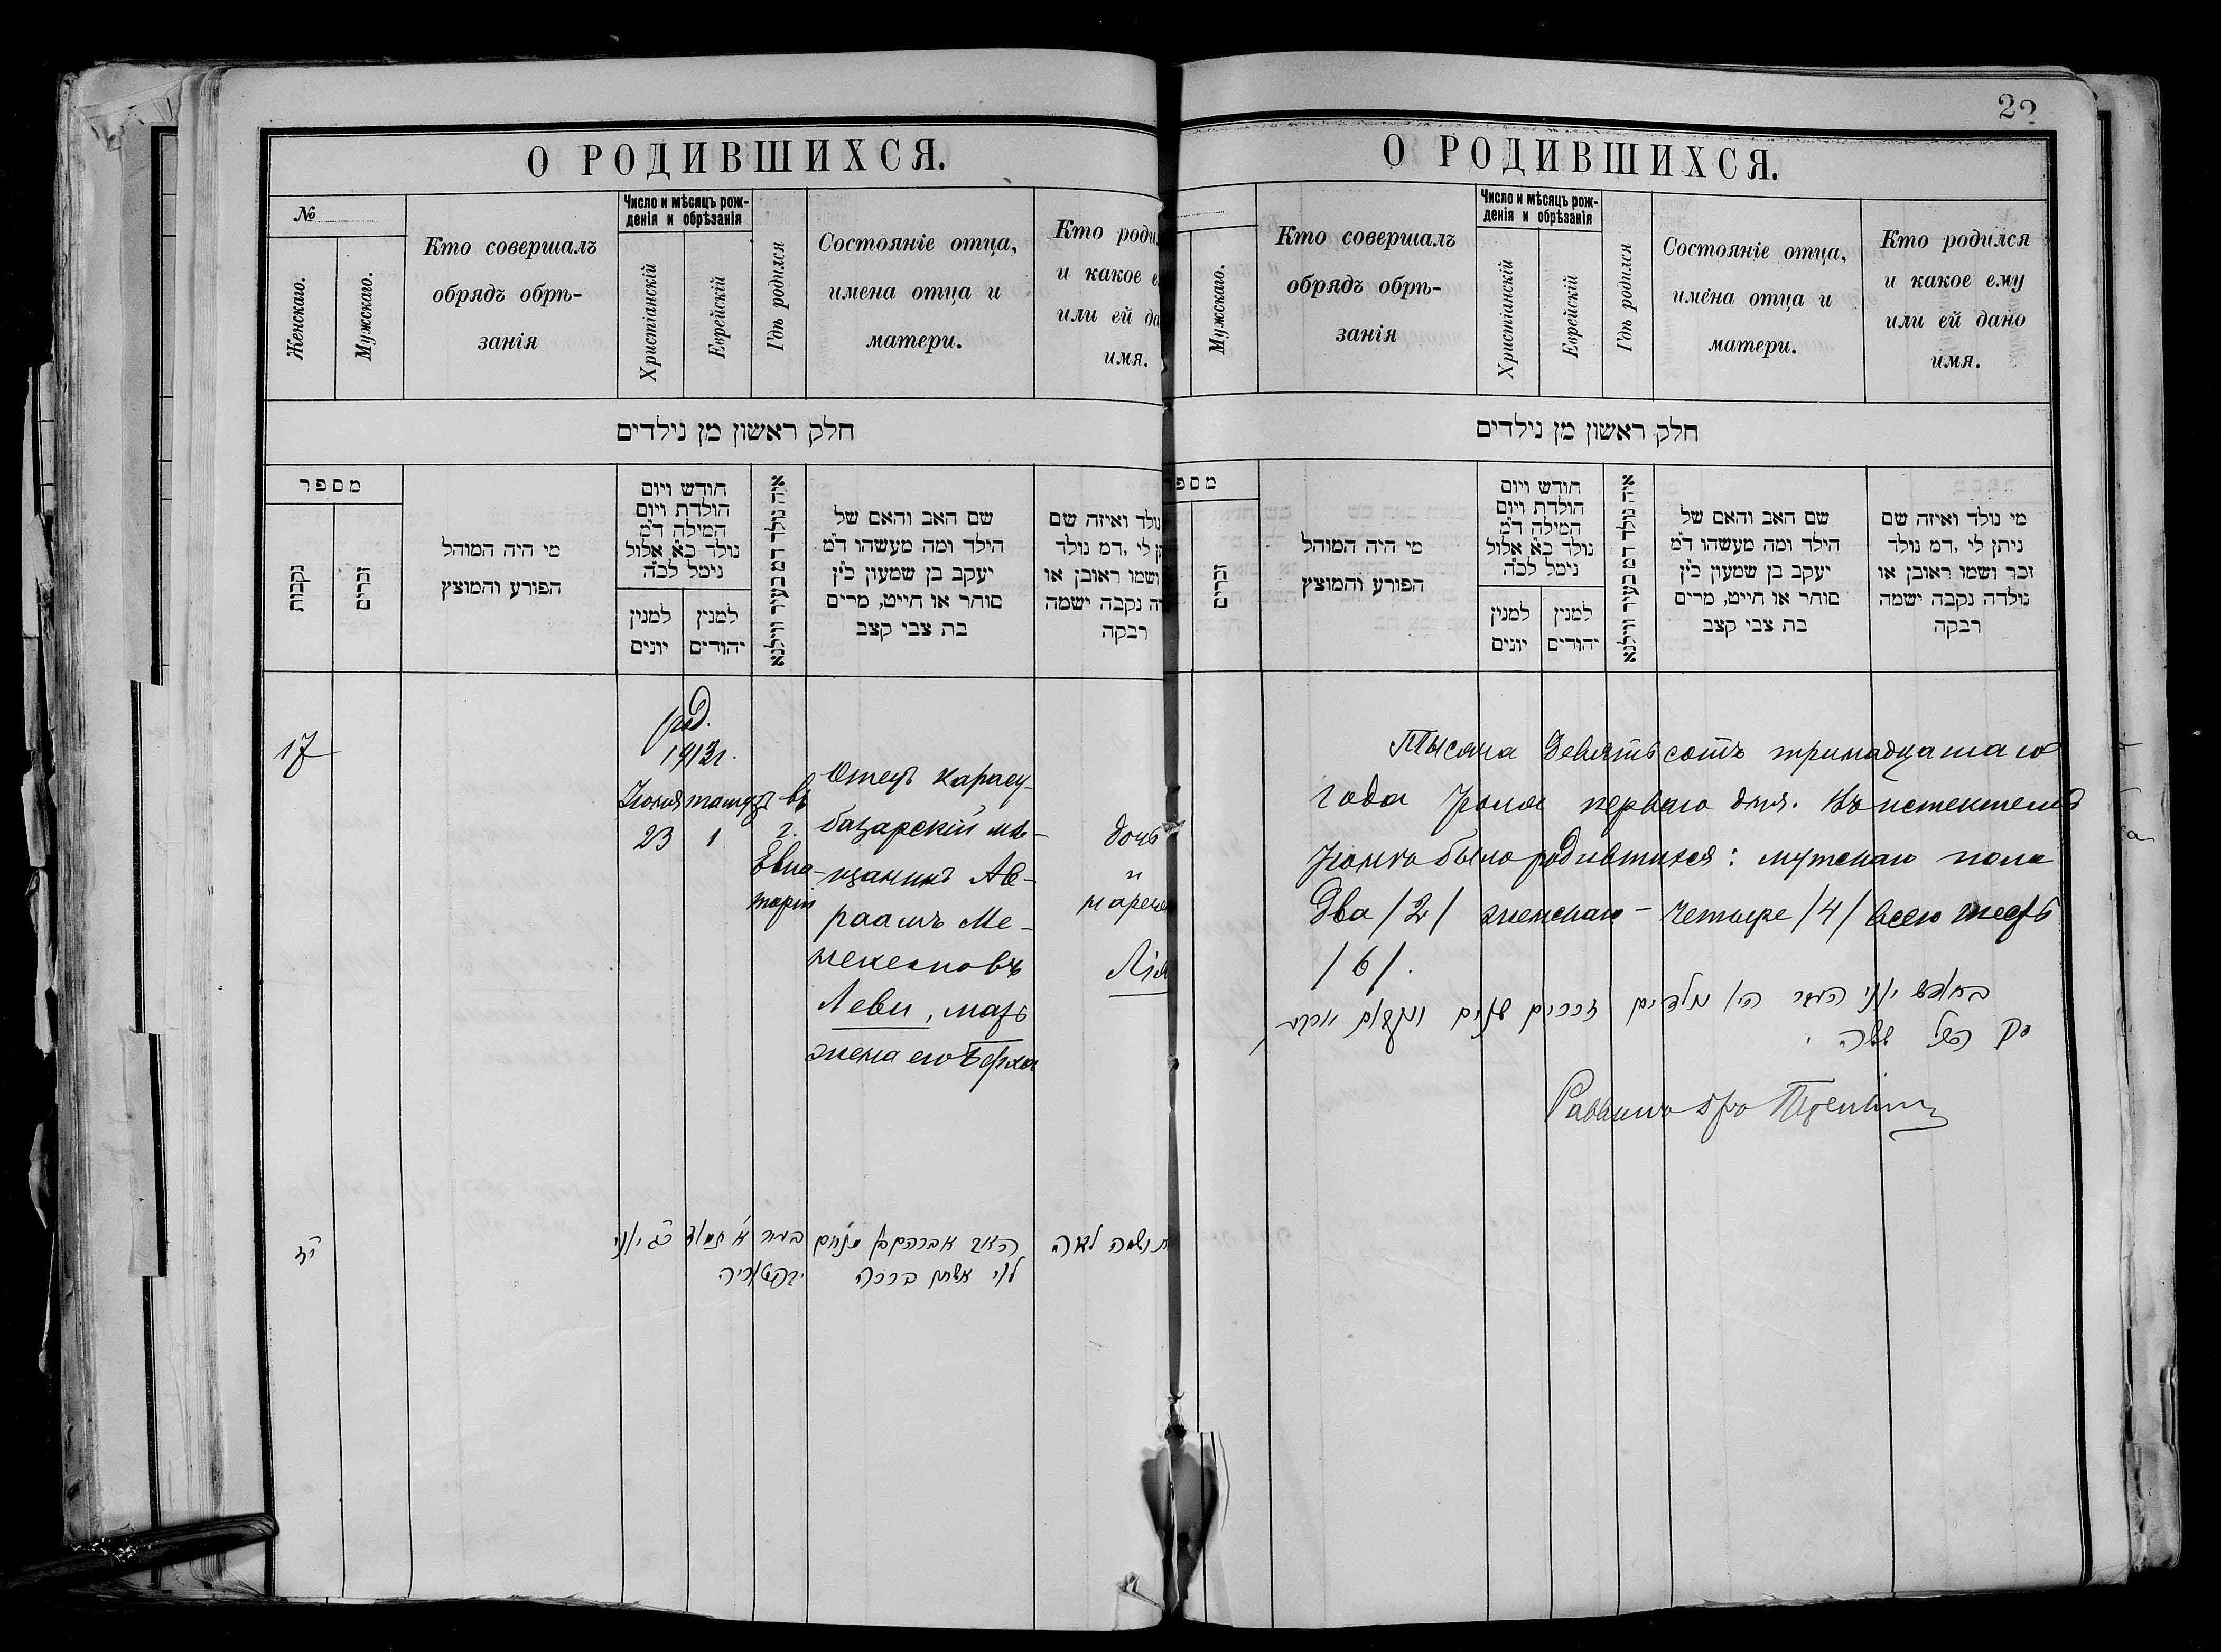 О РОДИВШИХСЯ.
№
Женскаго.
Мужскаго.
Кто совершалъ
обрядъ обрѣ-
занія
Число и мѣсяцъ рож-
денія и обрѣзанія
Христіанскій
Еврейскій
Гдѣ родился
Состояніе отца,
имена отца и
матери.
Кто роди
и какое е
или ей да
имя.
חלק ראשון מן נילדים
מספר
נקבות
זכרים
מי היה המוהל
הפורע והמוצץ
חודש ויום
הולדת ויום
המילה ד״מ
נולד כ״א אלול
נימל לכ״ה
למנין
יונים
למנין
יהודים
איה נולד דמ בעיר ווילנא
שם האב והאם של
הילד ומה מעשהו ד״מ
יעקב בן שמעון כ״ץ
סוחר או חייט, מרים
בת צבי קצב
נולד ואיזה שם
תן לי ,דמ נולד
ושמו ראובן או
דה נקבה ישמה
רבקה
17
род.
1913г.
Іюня
23
тамуз
1
въ
г.
Евпа-
торіи
Отецъ карасу-
базарскій мѣ-
щанинъ Ав-
раамъ Ме-
Леви, мать
жена его Берха
дочь
и
нарече
Лія
י״ז
כ״ג יוני
א׳ תמוז
בעיר
האב אברהם בן מנחם
לוי אשתו ברכה
ושמה לאה
22
О РОДИВШИХСЯ.
Мужскаго.
Кто совершалъ
обрядъ обрѣ-
занія
Число и мѣсяцъ рож-
денія и обрѣзанія
Христіанскій
Еврейскій
Гдѣ родился
Состояніе отца,
имена отца и
матери.
Кто родился
и какое ему
или ей дано
имя.
חלק ראשון מן נילדים
מספ
זכרים
מי היה המוהל
הפורע והמוצץ
חודש ויום
הולדת ויום
המילה ד״מ
נולד כ״א אלול
נימל לכ״ה
למנין
יונים
למנין
יהודים
איה נולד דמ בעיר ווילנא
שם האב והאם של
הילד ומה מעשהו ד״מ
יעקב בן שמעון כ״ץ
סוחר או חייט, מרים
בת צבי קצב
מי נולד ואיזה שם
ניתן לי ,דמ נולד
זכר ושמו ראובן או
נולדה נקבה ישמה
רבקה
Тысяча девятьсотъ тринадцатаго
года Іюля перваго дня. Въ истекшемъ
Іюнѣ было родившихся: мужскаго пола
два /2/ женскаго - четыре /4/ всего шесть
/6/.
בחודש יוני העבר היו נולדים זכרים שנים ונקבות ארבע
סך הכל ששה
Раввинъ